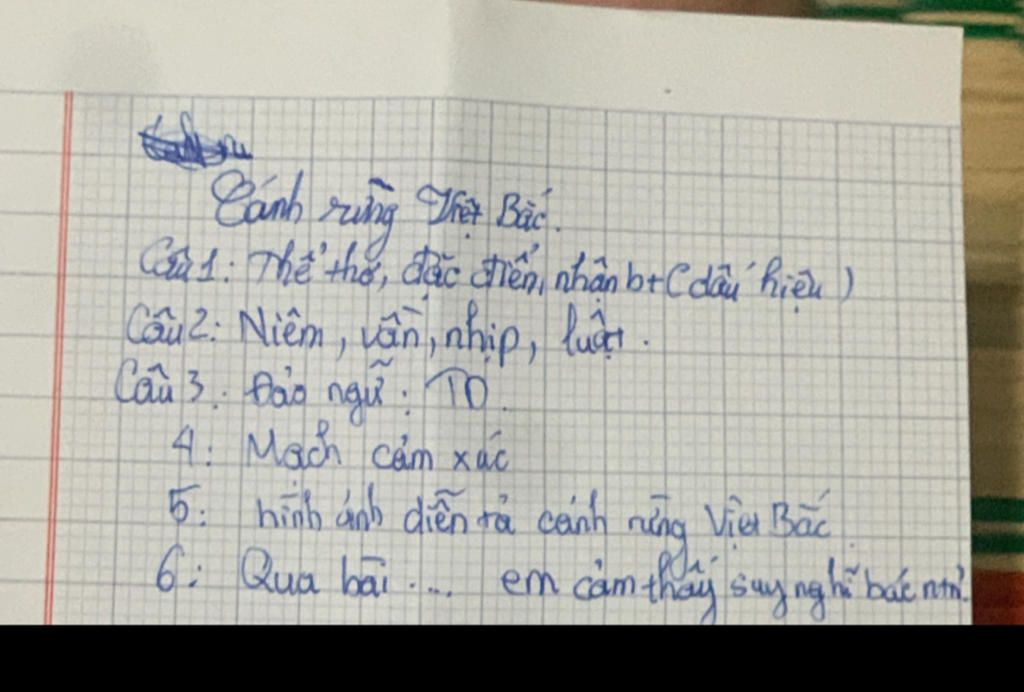 Cảnh rừng Việt Bắc.
Câu 1: Thể thơ, đặc điển, nhận bt (dấu hiệu)
Câu 2: Niêm, vần, nhịp, luật.
Câu 3: Đảo ngữ: TD.
4: Mạch cảm xúc
5: hình ảnh diễn tả cảnh rừng Việt Bắc.
6: Qua bài .... em cảm thấy suy nghĩ bác ntn?